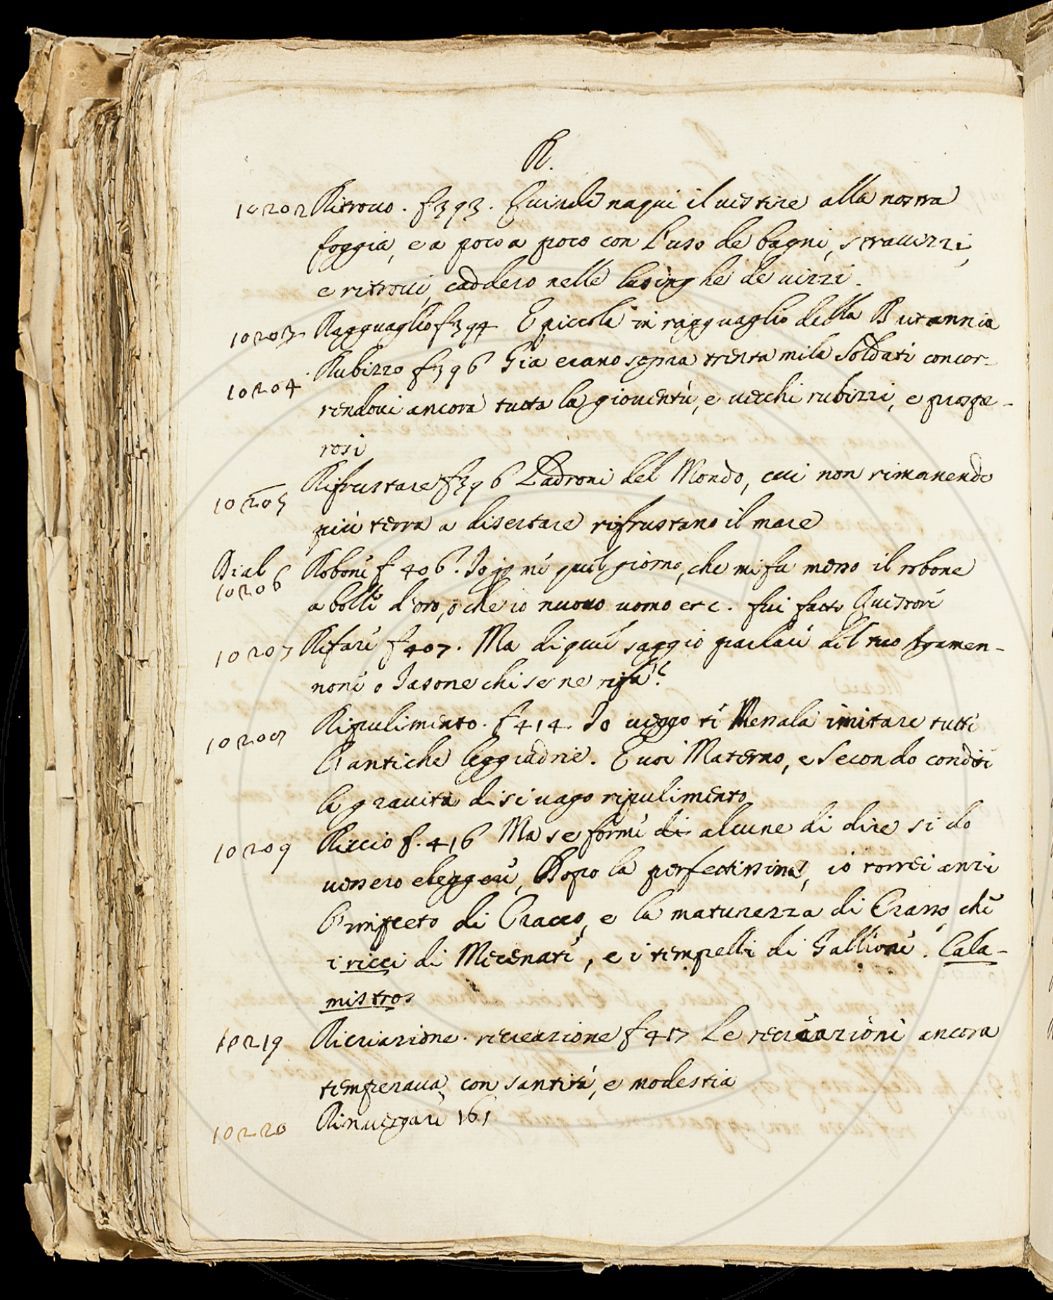 R.
10202 Ritrovo. f 393. Quindi naqui il vestire alla nostra
foggia, e a poco a poco con l'uso de bagni, stravizzi,
e ritrovi, caddero nelle lusinghe de vizzi.
10203 Ragguaglio f 394 E piccola in ragguaglio della Britannia
10204 Rubizzo f 396 Gia erano sopra trenta mila Soldati concor-
rendovi ancora tutta la gioventù, e vecchi rubizzi, e prospe-
rosi
10205 Rifrustare f 396 Ladroni del Mondo, cui non rimanendo
più terra a disertare rifrustano il mare
Dial
10206 Robone f 406. Io né quel giorno, che mi fu messo il robone
a bolli d'oro, o che io nuovo uomo etc. fui fatto Questore
10207 Rifare f 407. Ma di quel saggio parlavi del tuo Agamen-
none o Jasone chi se ne rifà?
10208 Ripulimento. f 414. Io veggo ti Messala imitare tutti
l'antiche leggiadrie. E voi Materno, e Secondo condite
la gravità di si vago ripulimento
10209 Riccio f. 416 Ma se forme di alcune di dire si do
vessero eleggere, Dopo la perfettissima, io torrei anzi
l'impeto di Gracco, e la maturezza di Crasso, che
i ricci di Mecenate, e i tempelli di Gallione. Cala-
mistros
10219 Ricriazione. recreazione f 417 Le recriazioni ancora
temperava con santità, e modestia
10220 Rinvergare 161